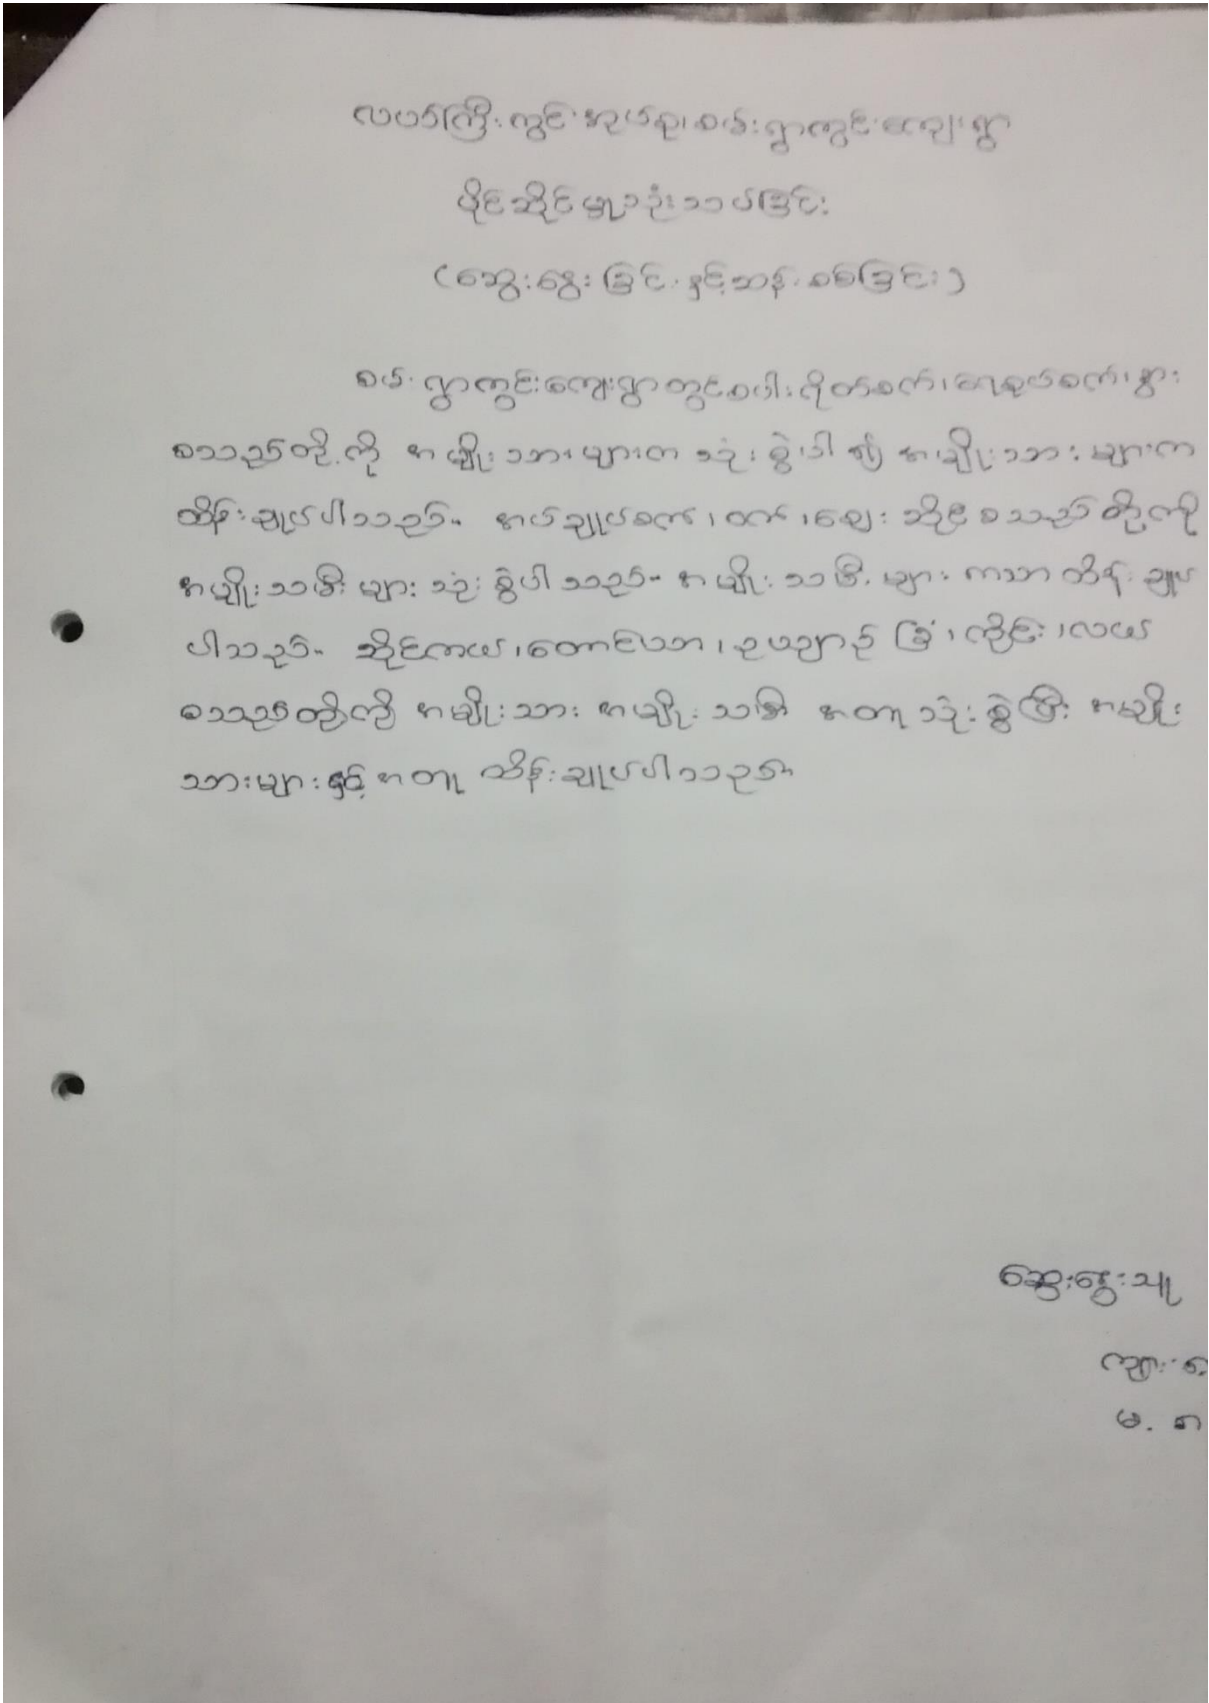 လပတ်ကြီးကွင်းအုပ်စု၊ စမ်းရွာကွင်းကျေးရွာ
ပိုင်ဆိုင်မှုသုံးသပ်ခြင်း
(ဆွေးနွေးခြင်းနှင့်ဆန်းစစ်ခြင်း)
စမ်းရွာကွင်းကျေးရွာတွင်စပါးရိုတ်စက်၊ရေစုပ်စက်၊နွား
စသည်တို့ကို အမျိုးသားများက သုံးစွဲပါ၍ အမျိုးသားများက
ထိန်းချုပ်ပါသည်။ အပ်ချုပ်စက်၊ဝက်၊ဈေးဆိုင်စသည်တို့ကို
အမျိုးသမီးများသုံးစွဲပါသည်။ အမျိုးသမီးများ ကသာထိန်းချုပ်
ပါသည်။ ဆိုင်ကယ်၊တောင်ယာ၊ဥယျာဉ်ခြံ၊ကိုင်း၊လယ်
စသည်တို့ကို အမျိုးသား အမျိုးသမီး အတူသုံးစွဲပြီး အမျိုး
သားများနှင့်အတူ ထိန်းချုပ်ပါသည်။
ဆွေးနွေးသူ
ကျား
မ.